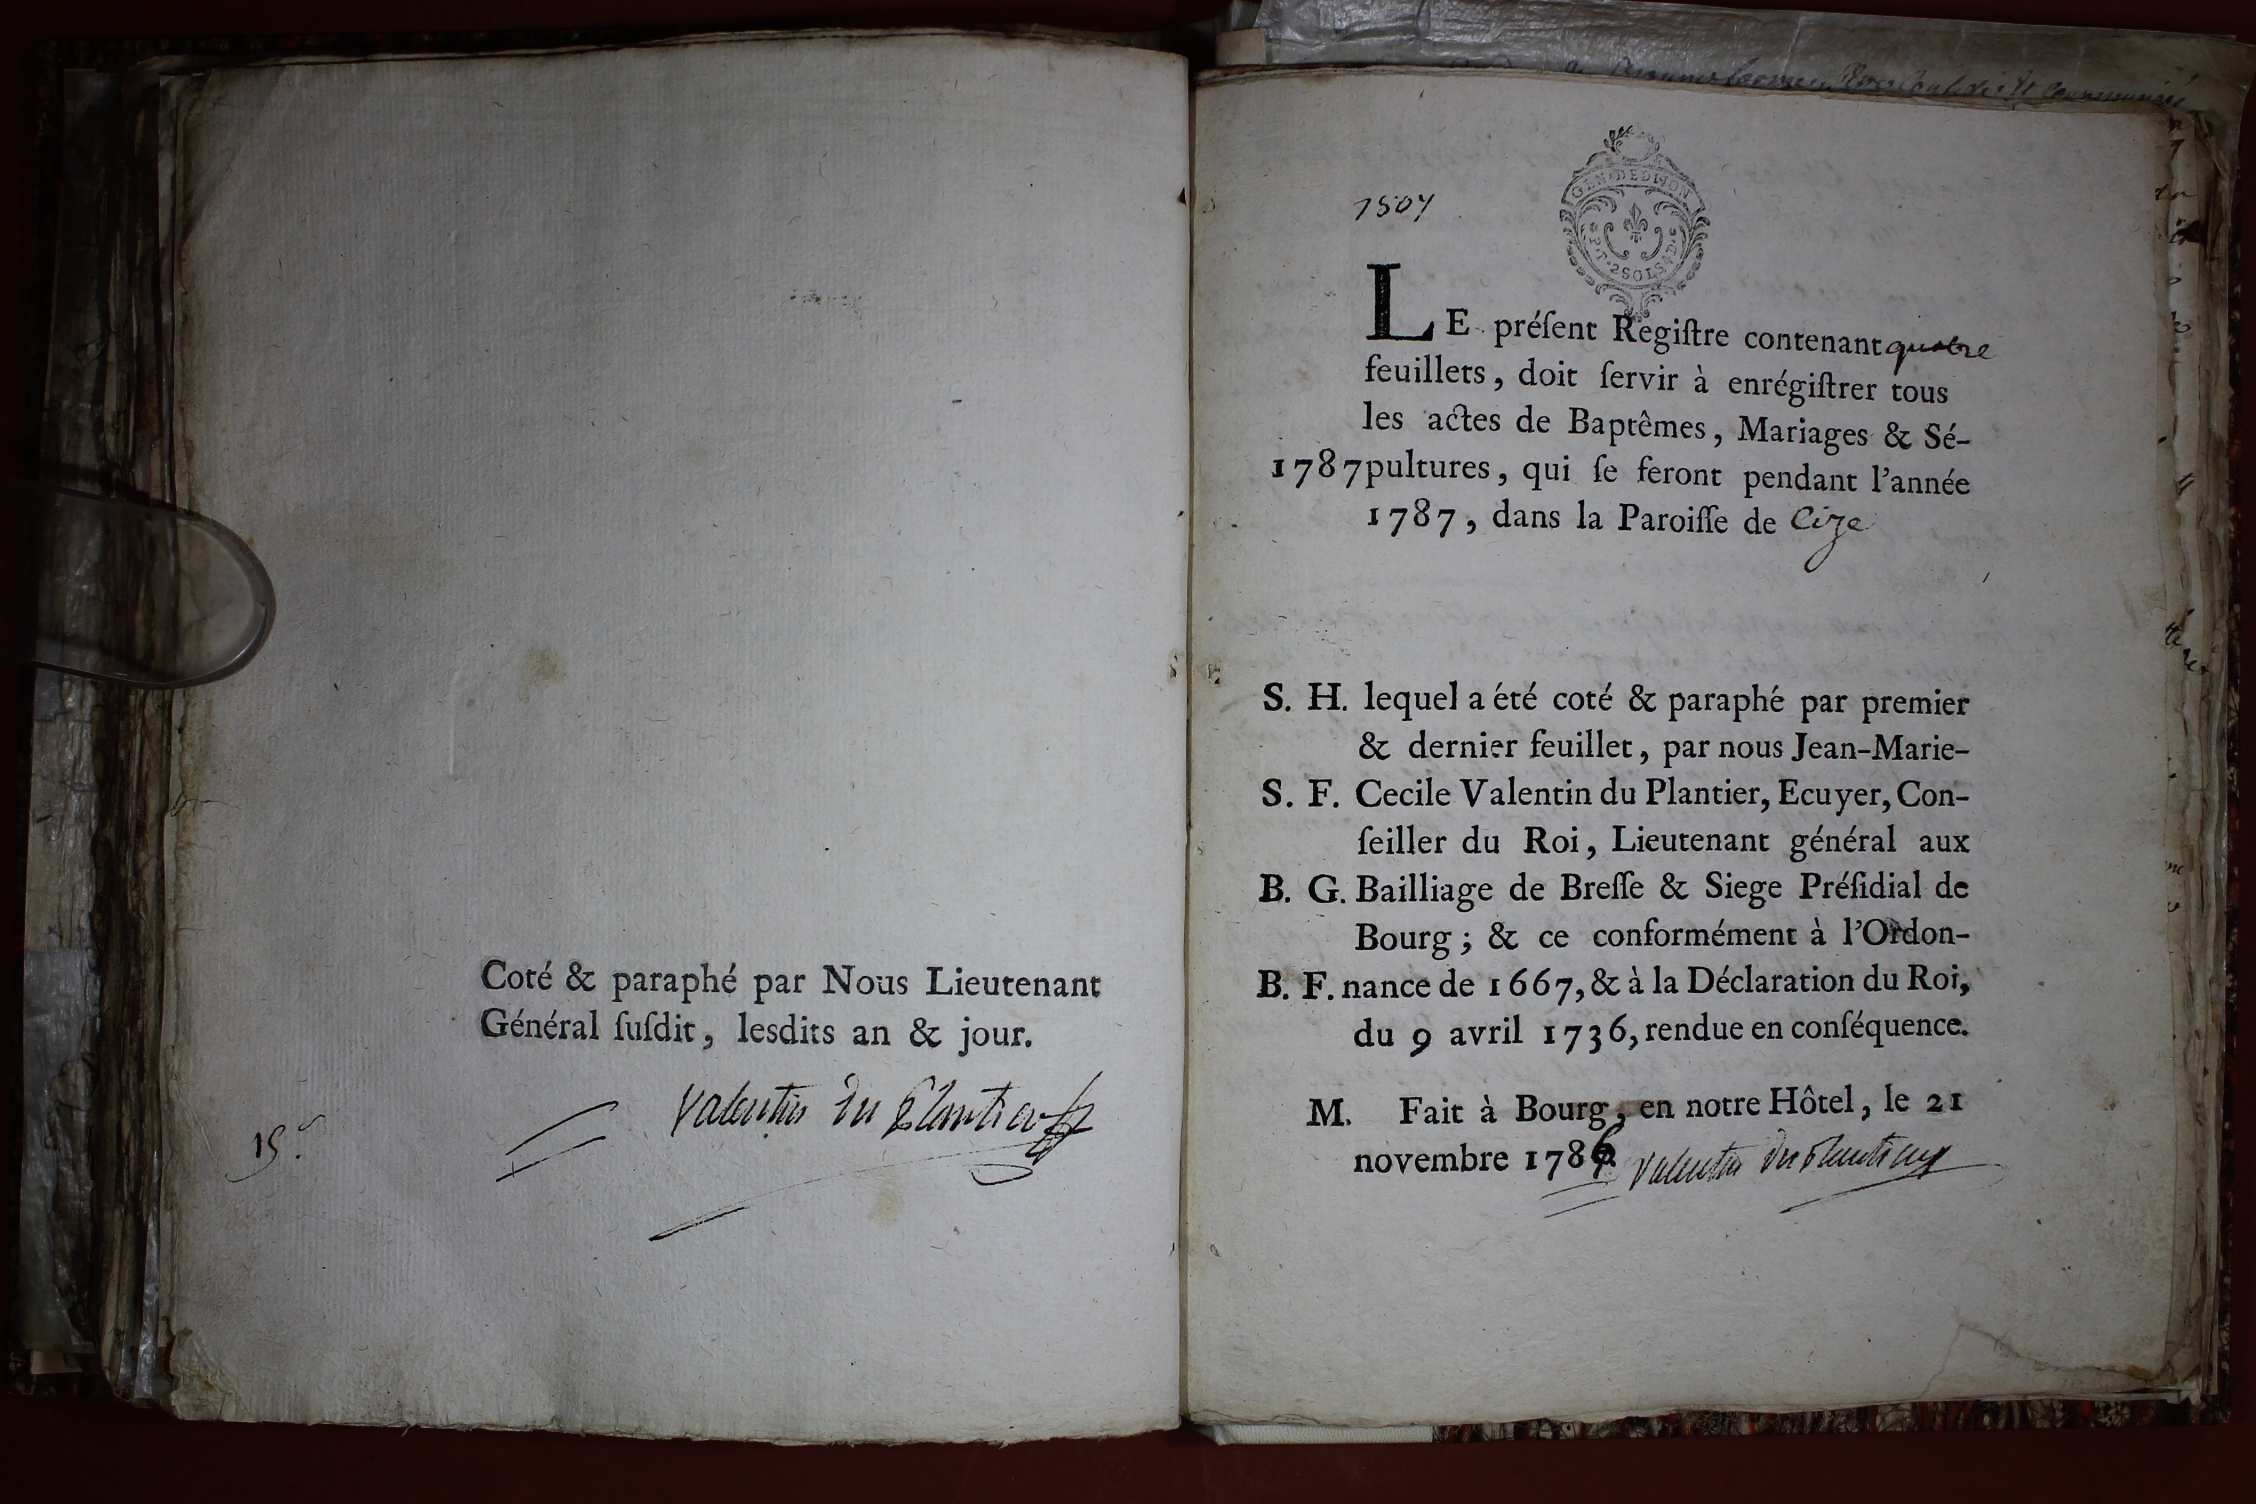 Coté & paraphé par Nous Lieutenant
Général ſuſdit, lesdits an & jour.
Valentin du Plantier
GEN. DE DIJON
P. T. 2 SOLS 4 D.
LE préſent Regiſtre contenant quatre
feuillets, doit ſervir à enrégiſtrer tous
les actes de Baptêmes, Mariages & Sé-
1787 pultures, qui ſe feront pendant l'année
1787, dans la Paroiſſe de Cize
S. H. lequel a été coté & paraphé par premier
& dernier feuillet, par nous Jean-Marie-
S. F. Cecile Valentin du Plantier, Ecuyer, Con-
ſeiller du Roi, Lieutenant général aux
B. G. Bailliage de Breſſe & Siege Préſidial de
Bourg ; & ce conformément à l'Ordon-
B. F. nance de 1667, & à la Déclaration du Roi,
du 9 avril 1736, rendue en conſéquence.
M. Fait à Bourg, en notre Hôtel, le 21
novembre 1786 Valentin du Plantier